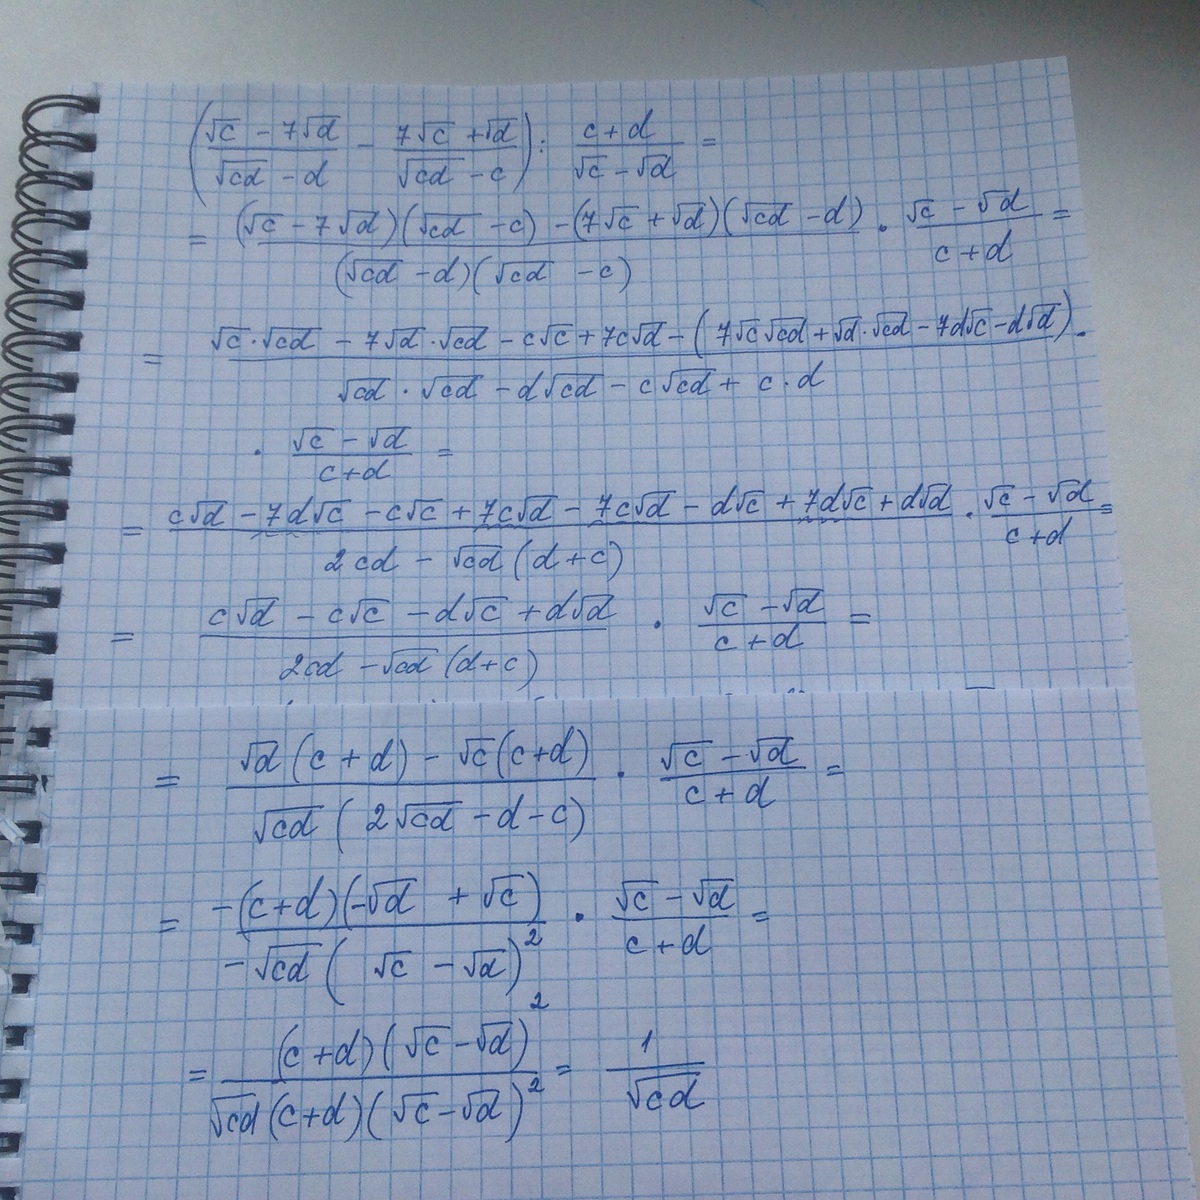 ((√c - 7√d)/(√cd - d) - (7√c + √d)/(√cd - c)) : (c + d)/(√c - √d) =
= ((√c - 7√d)(√cd - c) - (7√c + √d)(√cd - d))/((√cd - d)(√cd - c)) · (√c - √d)/(c + d) =
= (√c · √cd - 7√d · √cd - c√c + 7c√d - (7√c√cd + √d · √cd - 7d√c - d√d))/(√cd · √cd - d√cd - c√cd + c · d) ·
· (√c - √d)/(c + d) =
= (c√d - 7d√c - c√c + 7c√d - 7c√d - d√c + 7d√c + d√d)/(2cd - √cd (d + c)) · (√c - √d)/(c + d) =
= (c√d - c√c - d√c + d√d)/(2cd - √cd (d + c)) · (√c - √d)/(c + d) =
= (√d (c + d) - √c (c + d))/(√cd (2√cd - d - c)) · (√c - √d)/(c + d) =
= (-(c + d)(-√d + √c))/(-√cd (√c - √d)²) · (√c - √d)/(c + d) =
= ((c + d)(√c - √d)²)/(√cd (c + d)(√c - √d)²) = 1/√cd